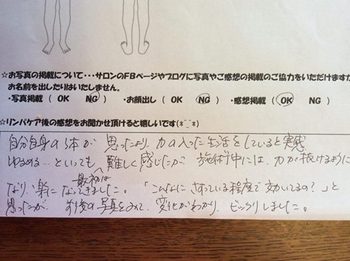 ☆お写真の掲載について・・・サロンのFBページやブログに写真やご感想の掲載のご協力をいただけますか
お名前を出したりはいたしません。
・写真掲載 ( OK NG ) ・お顔出し ( OK NG ) ・感想掲載 ( OK NG )
☆リンパケア後の感想をお聞かせ頂けると嬉しいです(*^_^*)
自分自身の体が 思ったより 力の入った生活をしていると実感
ゆるめる…といっても 難しく感じたが 施術中には、力が抜けるように
最初は
なり、楽になってきました。「こんなに さわっている程度で効いてるの?」と
思ったが、術後の写真をみて、変化がわかり、ビックリしました。